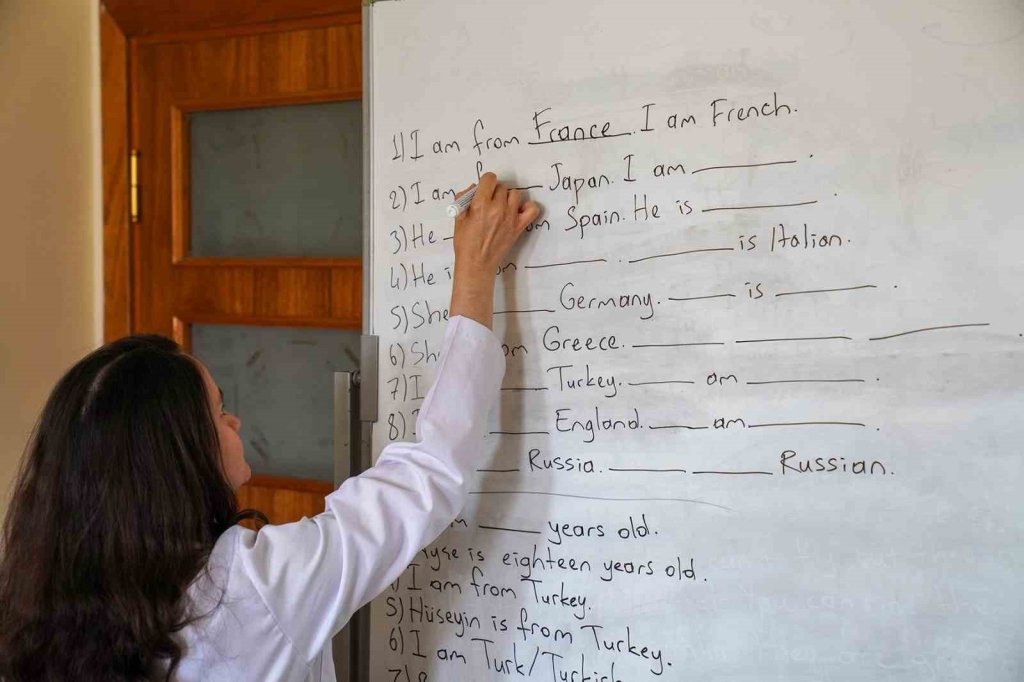 1) I am from France. I am French.
2) I am f___ Japan. I am ______.
3) He ___ Spain. He is ______.
4) He ______ . ______ is Italian.
5) She ______ Germany. ____ is ______.
6) ___ Greece. ______ ______ ______.
7) I ____ Turkey. ____ am ______.
8) ____ England. ____ am ______.
____ Russia. _____ _____ Russian.
____ years old.
is eighteen years old.
I am from Turkey.
5) Hüseyin is from Turkey.
6) I am Turk/Turkish